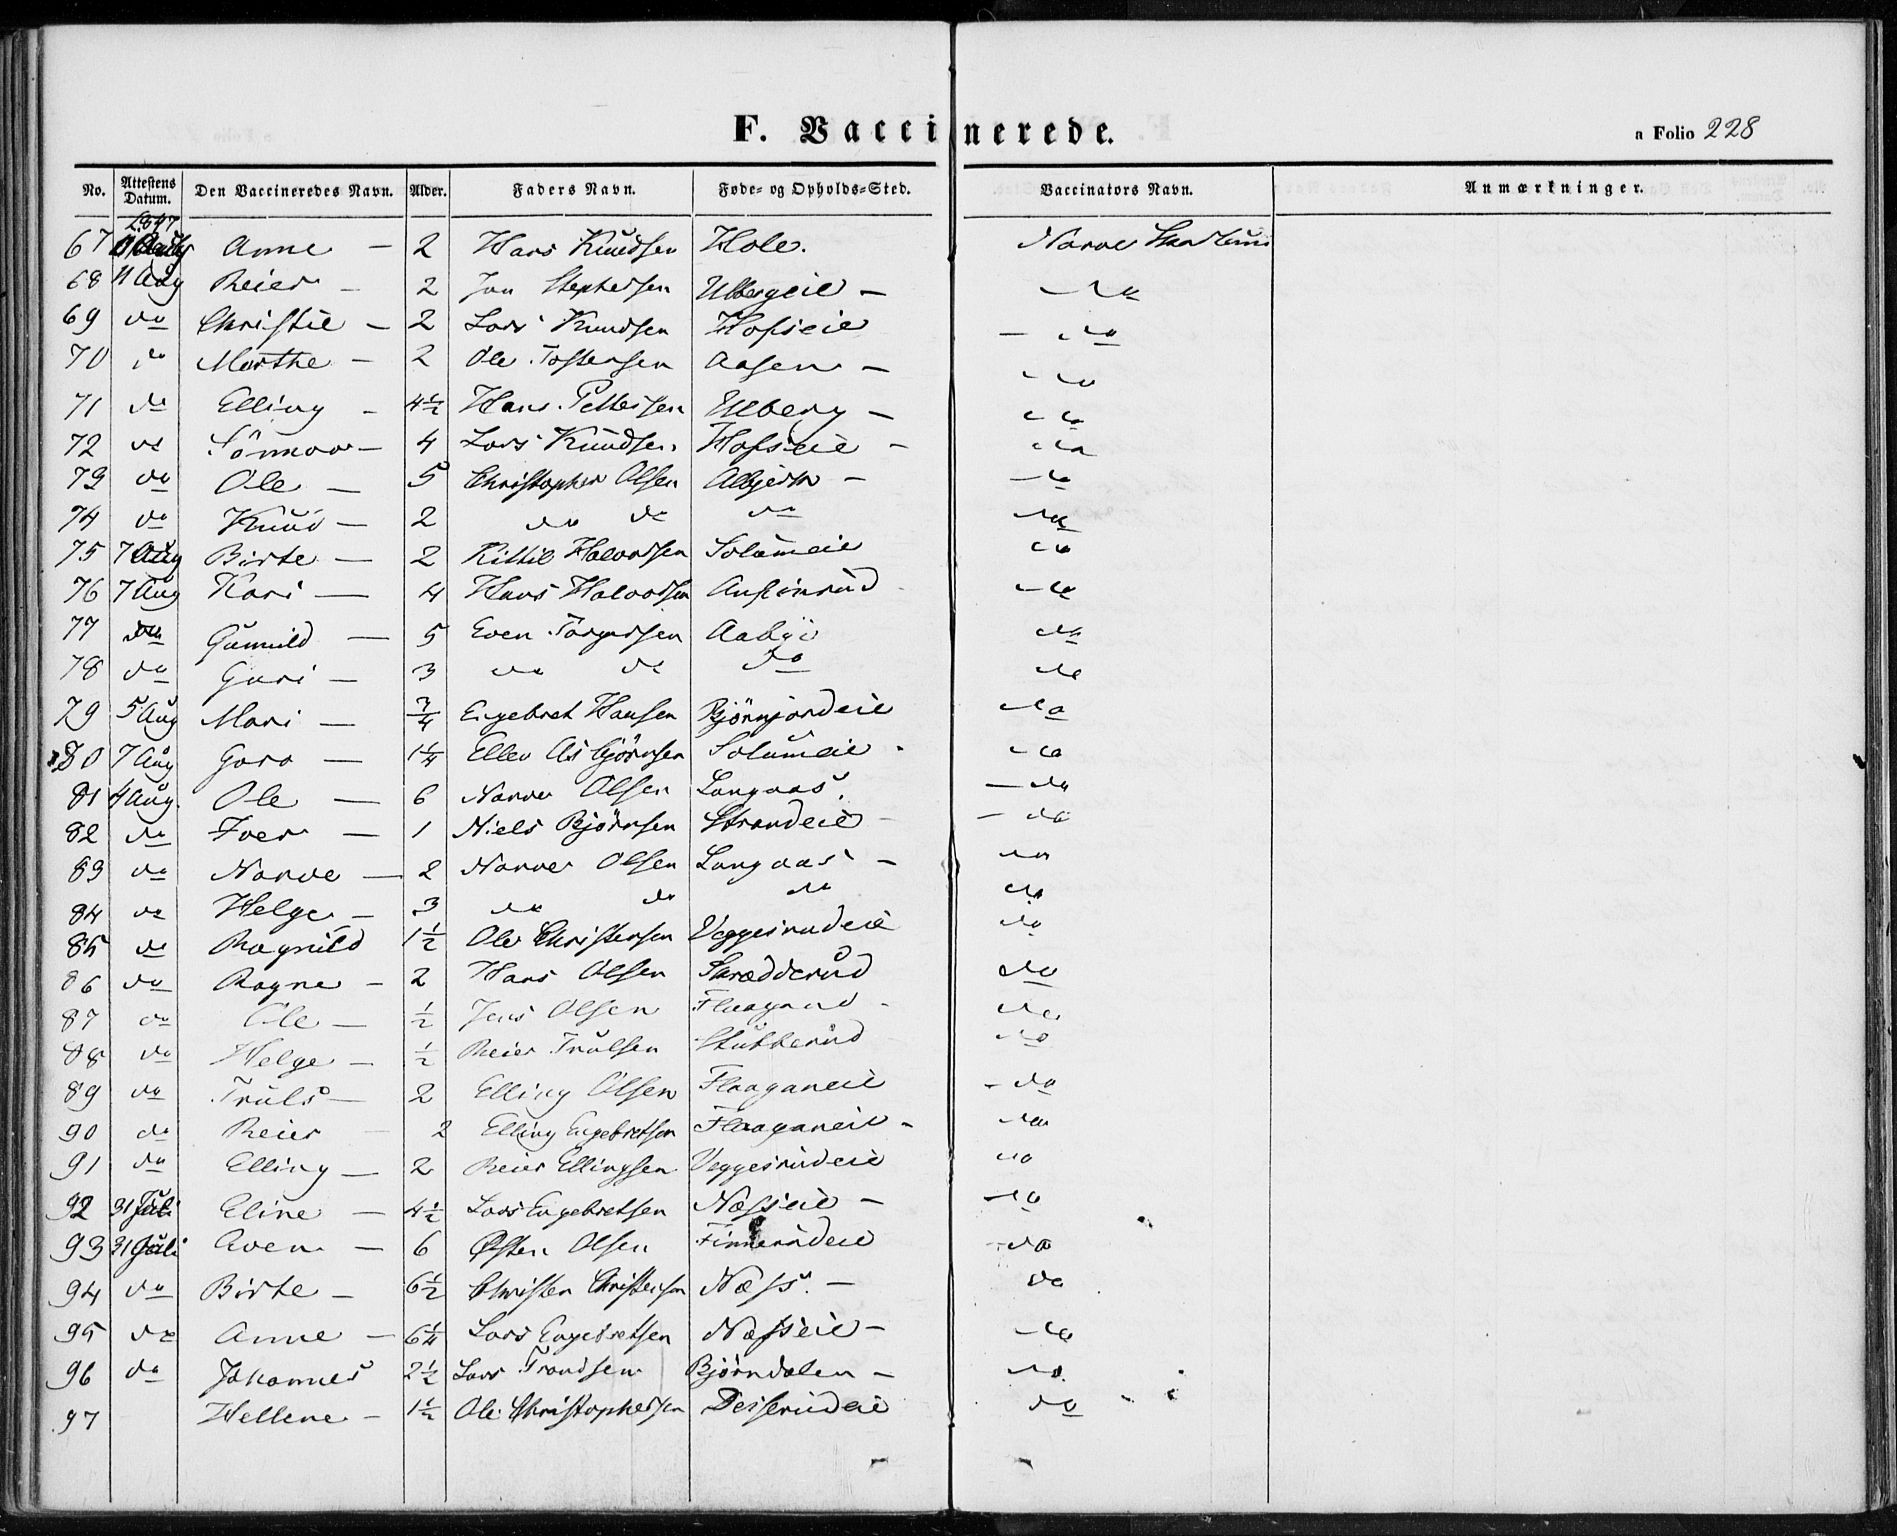 F. Vaccinerede.
a Folio 228
No. Attestens Datum. Den Vaccineredes Navn. Alder. Faders Navn. Føde- og Opholds-Sted. Vaccinators Navn. Anmærkninger.
1847
67 Anne – 2 Hans Knudsen Hole. Narve
68 11 Aug Reier – 2 Jon Stephersen – do
69 do Christie – 2 Lars Knudsen Hofseie – do
70 do Marthe – 2 Ole Tostensen Aasen – do
71 do Elling – 4½ Hans Pettersen Ulberg – do
72 do Sönnov – 4 Lars Knudsen Hofseie – do
73 do Ole – 5 Christopher Olsen – do
74 do Knud – 2 do do do do
75 7 Aug Birte – 2 Kittil Halvorsen Solumeie do
76 7 Aug Kari – 4 Hans Halvorsen do
77 do Gunnild – 5 Even Torgersen Aabye do
78 do Guri – 3 do do do do
79 5 Aug Mari – ¾ Engebret Hansen Björnjordeie do
80 7 Aug Goro – 1¼ Ellev Asbjörnsen Solumeie – do
81 4 Aug. Ole – 6 Narve Olsen Langaas. – do
82 do Iver – 1 Niels Björnsen Strandeie – – do
83 do Narve – 2 Narve Olsen Langaas – do
84 do Helge – 3 do do do do
85 do Ragnild 1½ Ole Christensen Veggesrudeie do
86 do Ragne – 2 Hans Olsen Skrædderud do
87 do Ole – ½ Jens Olsen – do
88 do Helge – ½ Reier Trulsen Stubberud do
89 do Truls – 2 Elling Olsen Flaaganeie – do
90 do Reier 2 Elling Engebretsen Flaaganeie – do
91 do Elling – 2 Reier Ellingsen Veggesrudeie do
92 31 Juli Eline – 4½ Lars Engebretsen Næsseie – do
93 31 Juli Aven – 6 Østen Olsen Finnerudeie do
94 do Birte – 6½ Christen Christensen Næss. – do
95 do Anne – 6¼ Lars Engebretsen Næsseie – do
96 do Johannes 2½ Lars Trondsen Björndalen – do
97 Hellene – 1½ Ole Christophersen do